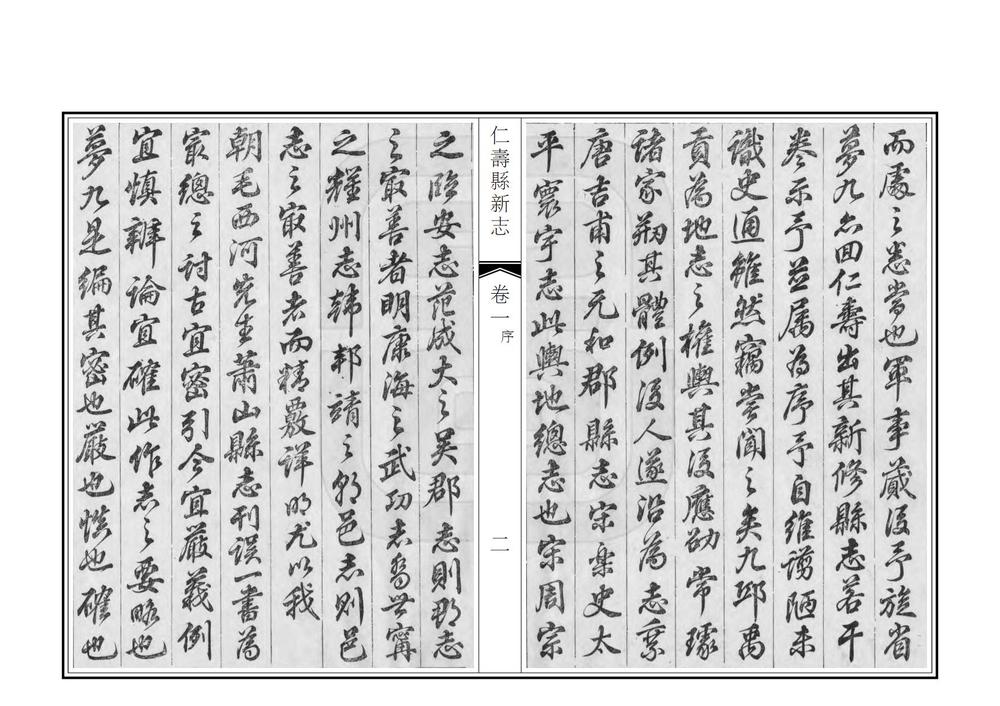 而處之悉當也軍事蕆後予旋省
夢九亦回仁壽出其新修縣志若干
卷示予並属為序予自維謭陋未
識史通雖然竊嘗聞之矣九邱禹
貢為地志之權輿其後應劭常璩
諸家剏其體例後人遂沿為志乘
唐吉甫之元和郡縣志宋樂史太
平寰宇志此輿地總志也宋周宗
仁壽縣新志
卷一
序
二
之臨安志范成大之吴郡志則郡志
之最善者明康海之武功志喬世寧
之耀州志韩邦靖之朝邑志则邑
志之最善者而精覈详明尤以我
朝毛西河先生蕭山縣志刊误一書為
最總之討古宜密引今宜嚴義例
宜慎辯論宜確此作志之要略也
夢九是編其密也嚴也慎也確也